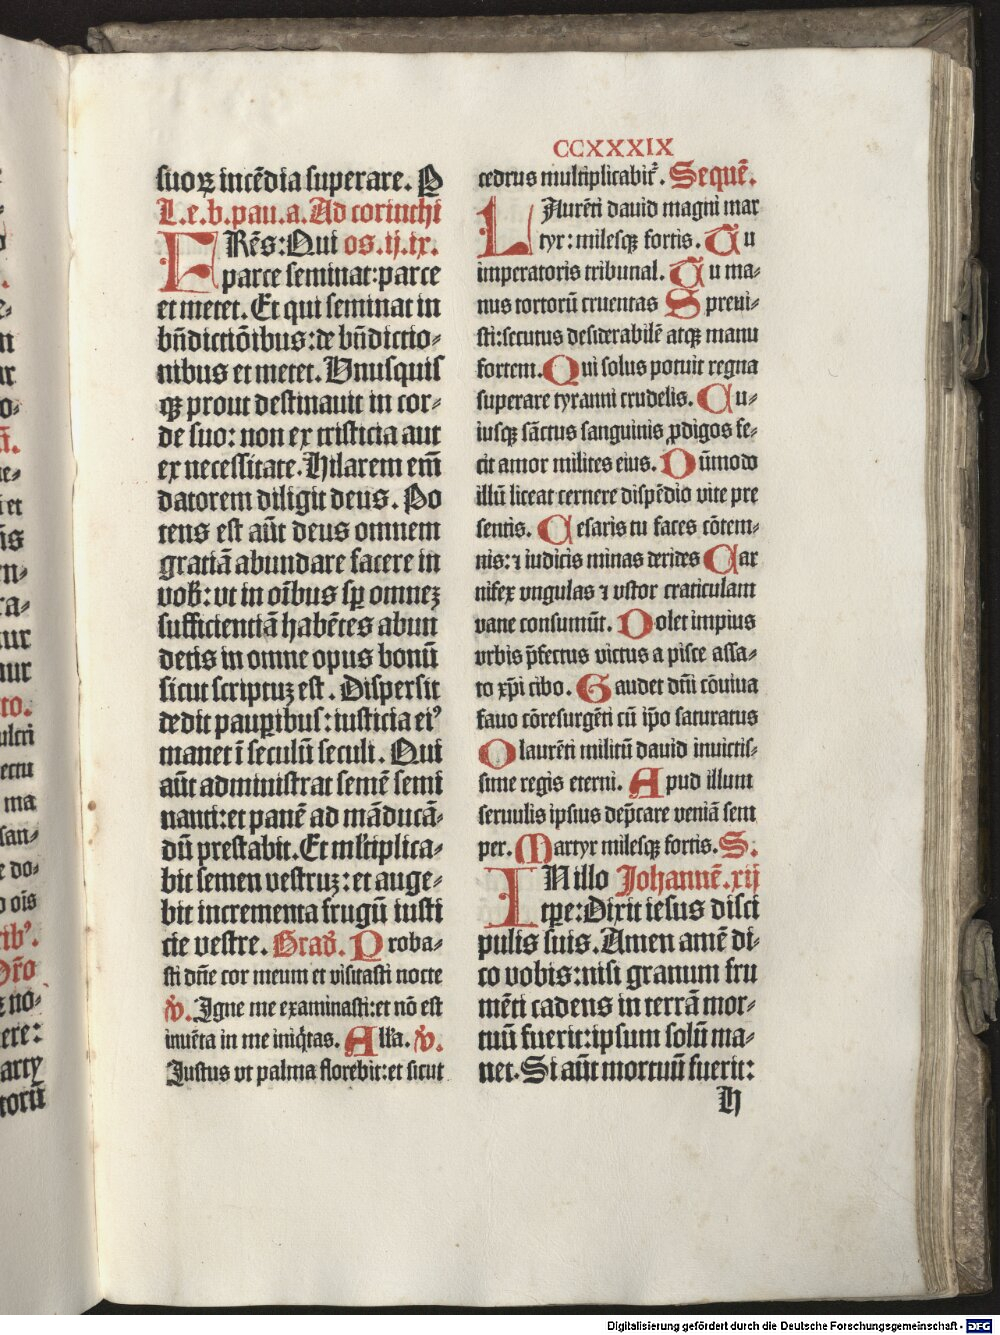 CCXXXIX
suoꝝ incēdia superare. P
L.e.b.pau.a. Ad corinthi
FRēs: Qui os.ij.ix.
parce seminat: parce
et metet. Et qui seminat in
bn̄dictiōibus: de bn̄dictio-
nibus et metet. Vnusquis
qꝫ prout destinauit in cor-
de suo: non ex tristicia aut
ex necessitate. Hilarem em̄
datorem diligit deus. Po
tens est aūt deus omnem
gratiā abundare facere in
vob̄: vt in oībus sꝑ omneꝫ
sufficientiā habētes abun
detis in omne opus bonū
sicut scriptuꝫ est. Dispersit
dedit pauꝑibus: iusticia eiꝰ
manet ī seculū seculi. Qui
aūt administrat semē semi
nanti: et panē ad māducā-
dū prestabit. Et mltiplica-
bit semen vestruꝫ: et auge-
bit incrementa frugū iusti
cie vestre. Grad̄. Proba-
sti dn̄e cor meum et visitasti nocte
v̄. Igne me examinasti: et nō est
inuēta in me iniq̇tas. Alľa. v̄.
Justus vt palma florebit: et sicut
cedrus multiplicabit̃. Sequē.
LAurēti dauid magni mar
tyr: milesqꝫ fortis. Tu
imperatoris tribunal. Tu ma-
nus tortorū cruentas Spreui-
sti: secutus desiderabilē atqꝫ manu
fortem. Qui solus potuit regna
superare tyranni crudelis. Cu-
iusqꝫ sāctus sanguinis ꝓdigos fe-
cit amor milites eius. Dūmodo
illū liceat cernere dispēdio vite pre
sentis. Cesaris tu fasces cōtem-
nis: ⁊ iudicis minas derides Car
nifex vngulas ⁊ vstor craticulam
vane consumūt. Dolet impius
vrbis p̄fectus victus a pisce assa-
to xp̄i cibo. Gaudet dn̄i cōuiua
fauo cōresurgēti cū ip̄o saturatus
O laurēti militū dauid inuictis-
sime regis eterni. Apud illum
seruulis ipsius dep̄care veniā sem
per. Martyr milesqꝫ fortis. S.
IN illo Johannē.xij
tꝑe: Dixit iesus disci
pulis suis. Amen amē di-
co vobis: nisi granum fru
mēti cadens in terrā mor-
tuū fuerit: ipsum solū ma-
net. Si aūt mortuū fuerit:
h
Digitalisierung gefördert durch die Deutsche Forschungsgemeinschaft - DFG